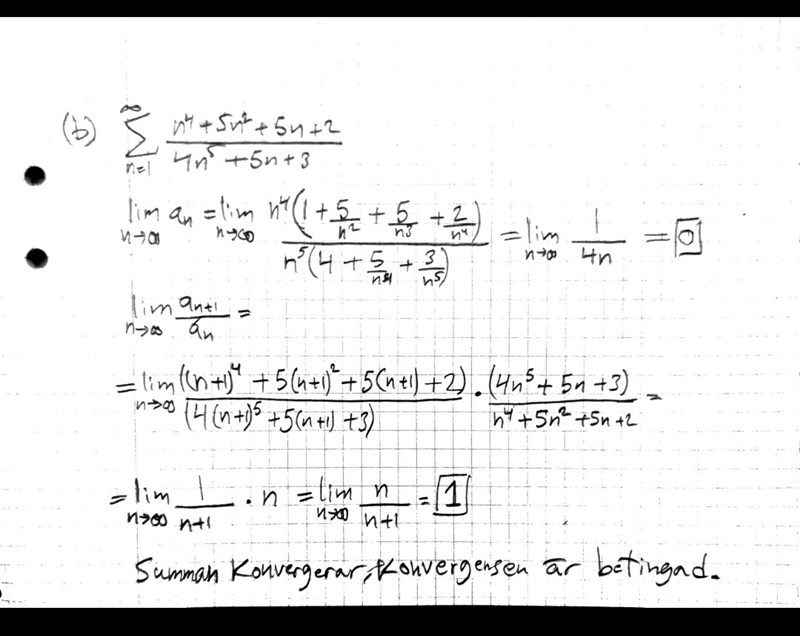 (b) ∑_{n=1}^{∞} (n⁴+5n²+5n+2)/(4n⁵+5n+3)
lim_{n→∞} aₙ = lim_{n→∞} n⁴(1 + 5/n² + 5/n³ + 2/n⁴)/(n⁵(4 + 5/n⁴ + 3/n⁵)) = lim_{n→∞} 1/(4n) = 0
lim_{n→∞} aₙ₊₁/aₙ =
= lim_{n→∞} ((n+1)⁴ + 5(n+1)² + 5(n+1) + 2)/(4(n+1)⁵ + 5(n+1) + 3) · (4n⁵ + 5n + 3)/(n⁴ + 5n² + 5n + 2) =
= lim_{n→∞} 1/(n+1) · n = lim_{n→∞} n/(n+1) = 1
Summan Konvergerar, Konvergensen är betingad.